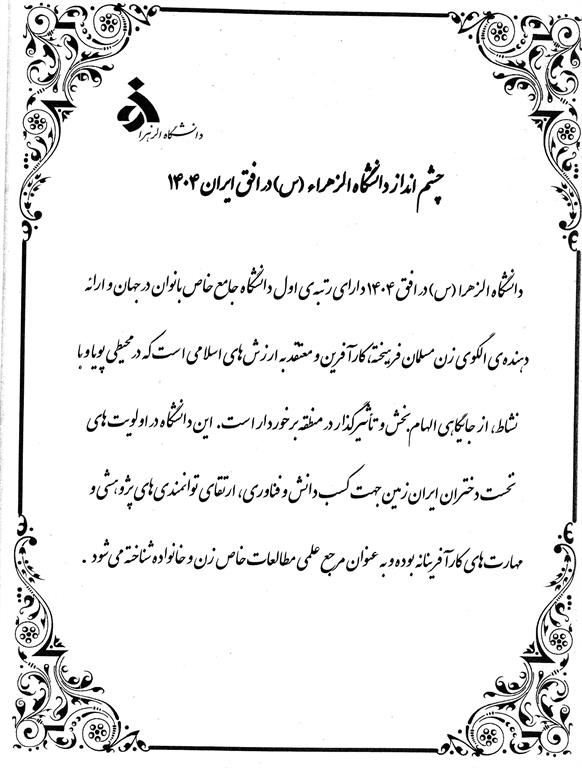 دانشگاه الزهرا
چشم انداز دانشگاه الزهراء (س) در افق ایران ۱۴۰۴
دانشگاه الزهرا (س) در افق ۱۴۰۴ دارای رتبه‌ی اول دانشگاه جامع خاص بانوان در جهان و ارائه
دهنده‌ی الگوی زن مسلمان فرهیخته، کارآفرین و معتقد به ارزش های اسلامی است که در محیطی پویا و با
نشاط، از جایگاهی الهام بخش و تأثیرگذار در منطقه برخوردار است. این دانشگاه در اولویت های
نخست دختران ایران زمین جهت کسب دانش و فناوری، ارتقای توانمندی های پژوهشی و
مهارت های کارآفرینانه بوده و به عنوان مرجع علمی مطالعات خاص زن و خانواده شناخته می شود .